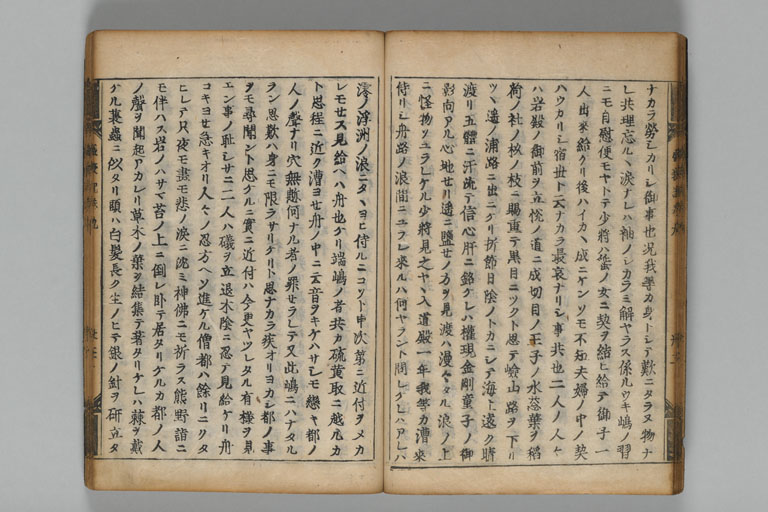 ナカラ勞シカリシ御事也况我等カ身トシテ歎ニタラヌ物ナ
レ共理忘ルヽ涙ナレハ袖ノシカラミ解ヤラス係ルウキ嶋ノ習
ニモ自慰便モヤトテ少將ハ蜑ノ女ニ契ヲ結ヒ給テ御子一
人出來給ケリ後ハイカヽ成ニケンソモ不知夫婦ノ中ノ契
ハウカリシ宿世ト云ナカラ最哀ナリシ事共也二人ノ人々
ハ岩殿ノ御前ヲ立悦ノ道ニ成切目ノ王子ノ水葱葉ヲ稻
荷ノ社ノ椙ノ枝ニ賜重テ黒目ニツクト思テ嶮山路ヲ下リ
ツヽ遙ノ浦路ニ出ニケリ折節日陰ノトカニシテ海上遠ク晴
渡リ五體ニ汗流テ信心肝ニ銘ケレハ權現金剛童子ノ御
影向アル心地セリ遥ニ鹽セノ方ヲ見渡ハ漫々タル浪ノ上
ニ怪物ソユラレケル少將見之ヤヽ入道殿一年我等カ漕來
侍リシ舟路ノ浪間ニユラレ來ルハ何ヤラント問レケレハアレハ
澪ノ浮洲ノ浪ニタヽヨヒ侍ルニコソト申次第ニ近付ヲメカ
レモセス見給ヘハ舟也ケリ端嶋ノ者共カ硫黄取ニ越ルカ
ト思程ニ近ク漕ヨセ舟ノ中ニ云音ヲキケハサレモ戀キ都ノ
人ノ聲ナリ穴無慙何ナル者ノ罪セラレテ又此嶋ニハナタル
ラン思歎ハ身ニモ限ラサリケリト思ナカラ疾オリヨカシ都ノ事
ヲモ尋聞ント思ケルニ實ニ近付ハ今更ヤツレタル有様ヲ見
エン事ノ恥シサニ二人ハ礒ヲ立退木陰ニ忍テ見給ケリ舟
コキヨセ急キオリ人々ノ忍方ヘソ進ケル僧都ハ餘リニクタ
ヒレテ只夜モ晝モ悲ノ涙ニ沈ミ神佛ニモ祈ラス熊野詣ニ
モ伴ハス岩ノハサマ苔ノ上ニ倒レ臥テ居タリケルカ都ノ人
ノ聲ヲ聞起アカレリ草木ノ葉ヲ結集テ著タリケレハ棘ヲ戴
ケル蓑蟲ニ似タリ頭ハ白髪長ク生ノヒテ銀ノ針ヲ研立タ